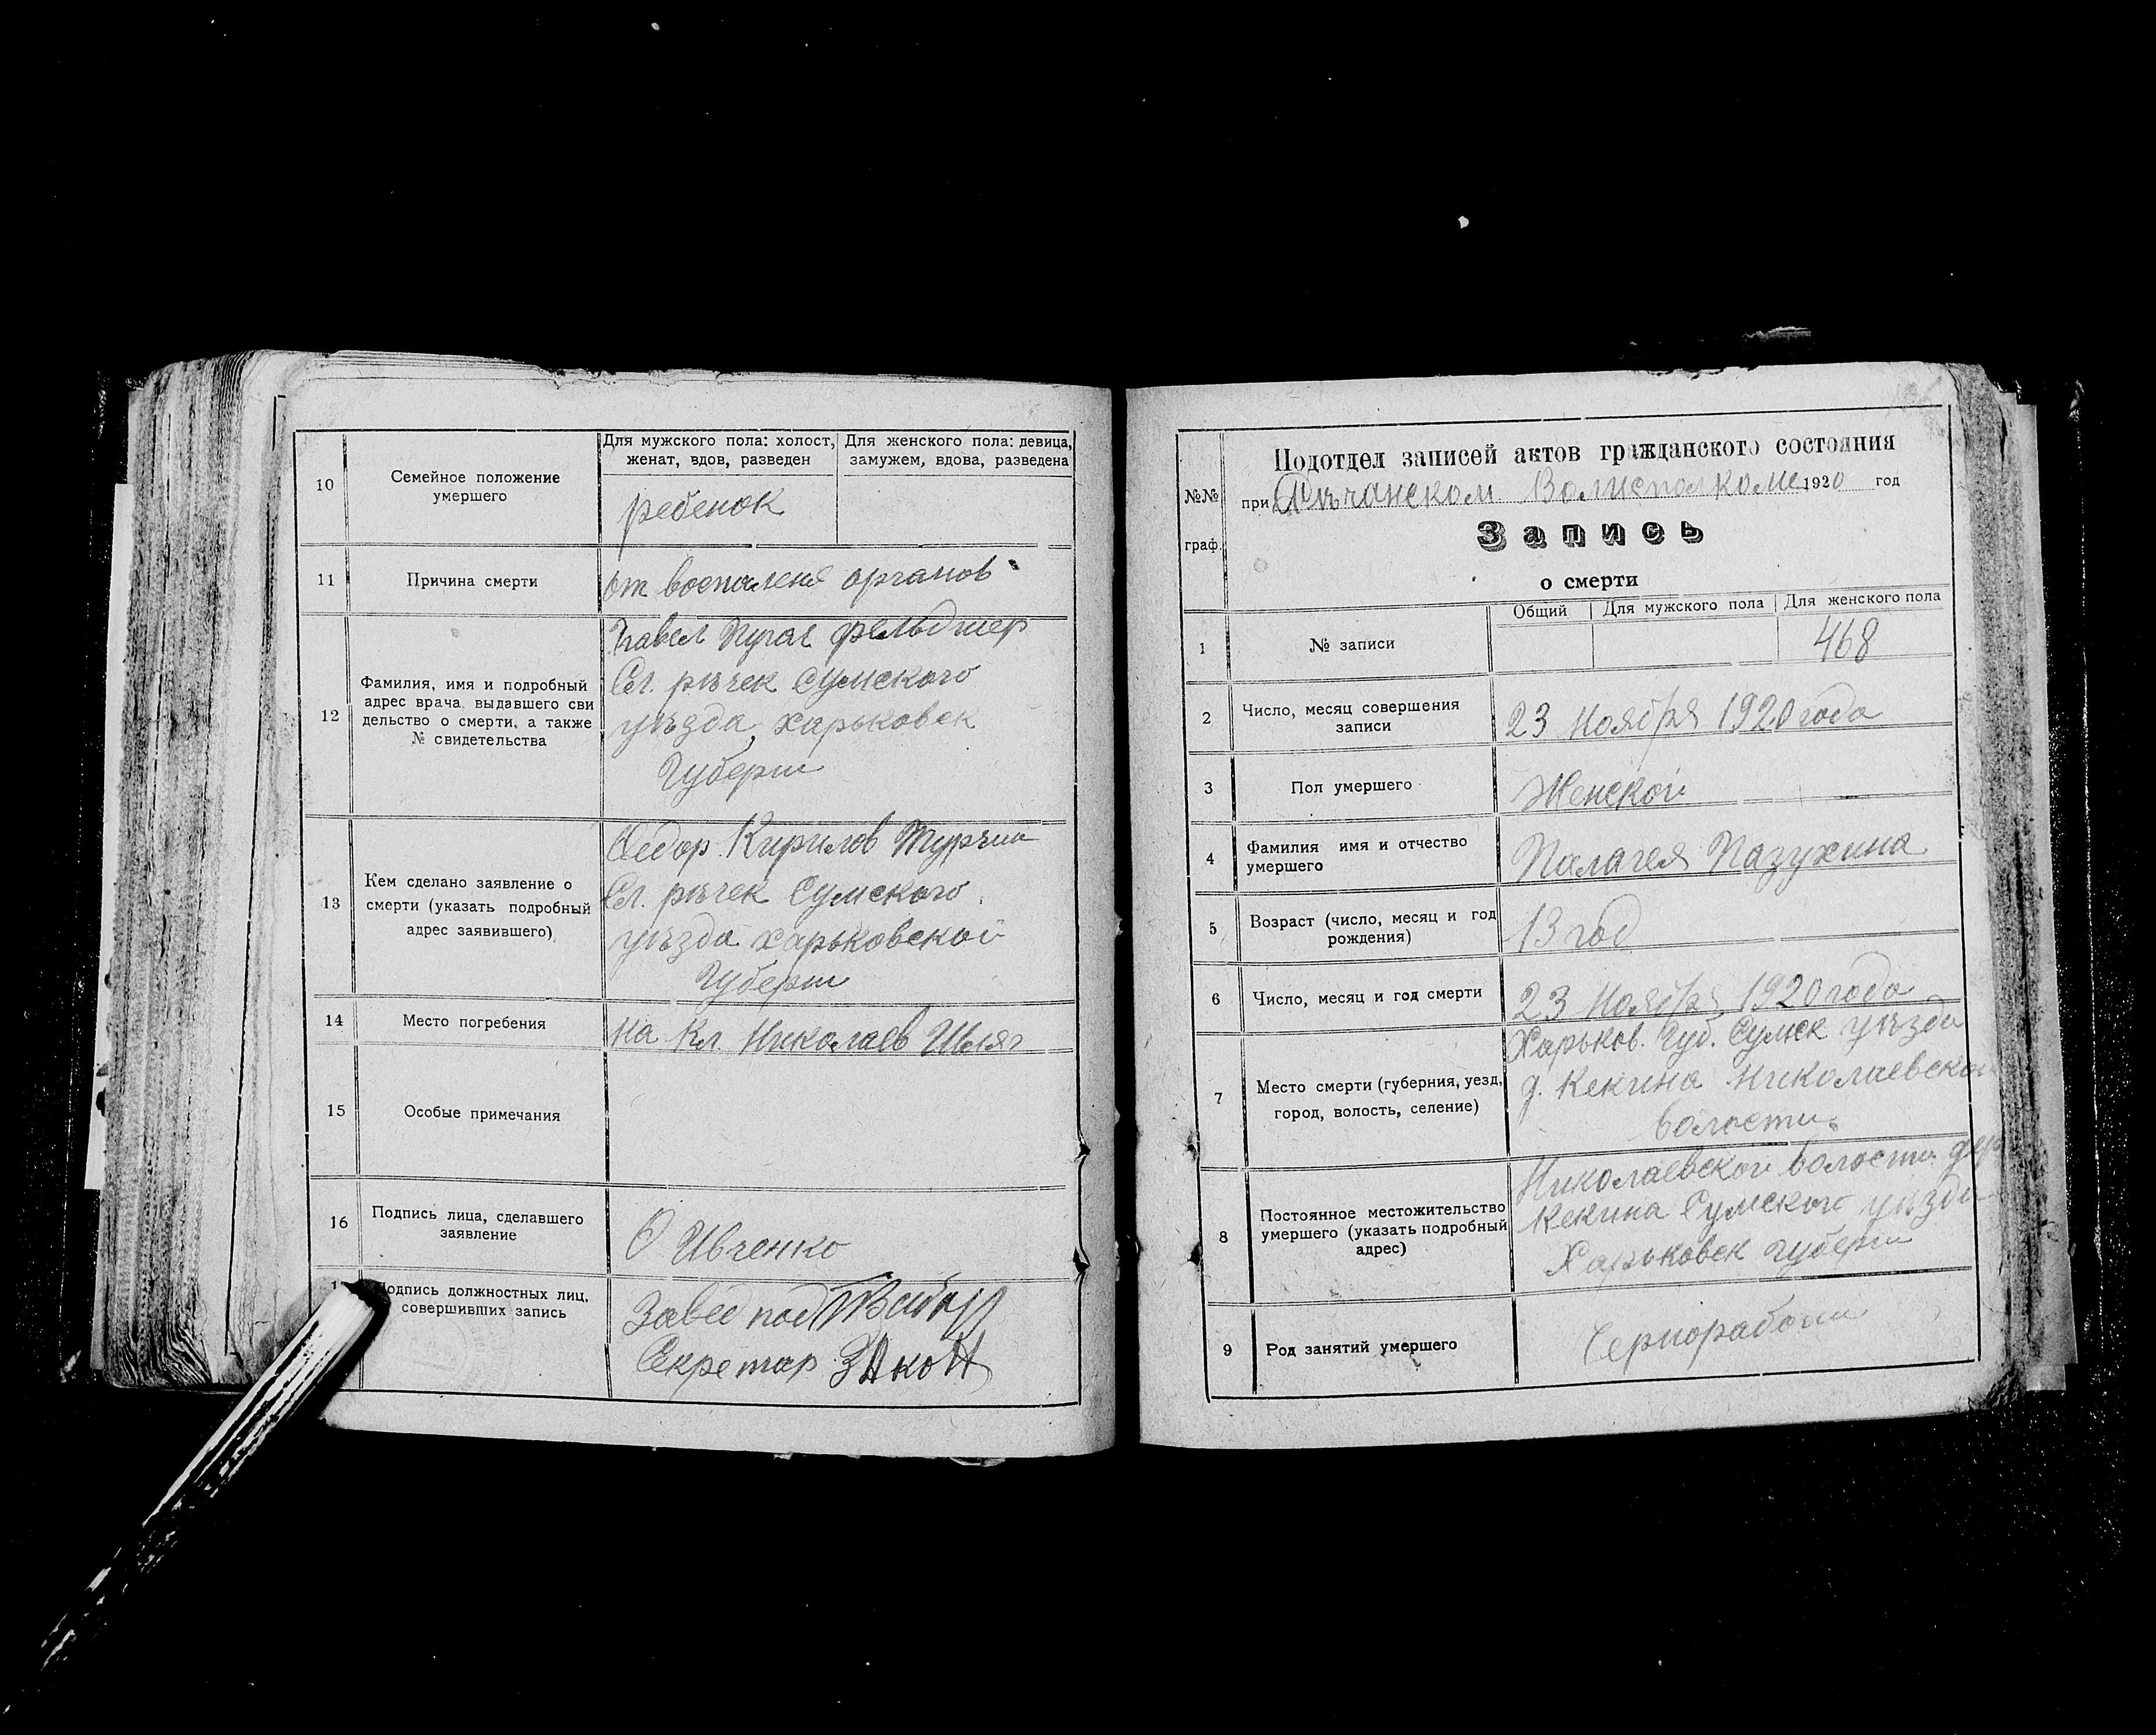 10
Семейное положение
умершего
Для мужского пола: холост,
женат, вдов, разведен
Для женского пола: девица,
замужем, вдова, разведена
ребенок
11
Причина смерти
от воспаления органов
12
Фамилия, имя и подробный
адрес врача, выдавшего сви
дельство о смерти, а также
№ свидетельства
Павел Пугач фельдшер
Сл. рѣчек Сумского
уѣзда Харьковск
Губерти
13
Кем сделано заявление о
смерти (указать подробный
адрес заявившего)
Федор Кирилов
Сл. рѣчек Сумского
уѣзда Харьковской
Губерти
14
Место погребения
на Кл. Николаев Шляг
15
Особые примечания
16
Подпись лица, сделавшего
заявление
О Ивченко
Подпись должностных лиц,
совершивших запись
Завед под
Секретар
№№
граф.
Подотдел записей актов гражданского состояния
при Рѣчанском Волисполкоме 1920 год
Запись
о смерти
Общий
Для мужского пола
Для женского пола
1
№ записи
468
2
Число, месяц совершения
записи
23 Ноября 1920 года
3
Пол умершего
Женской
4
Фамилия имя и отчество
умершего
Палагея Пазухина
5
Возраст (число, месяц и год
рождения)
13 год
6
Число, месяц и год смерти
23 Ноября 1920 года
7
Место смерти (губерния, уезд,
город, волость, селение)
Харьков. Губ. Сумск уѣзда
д. Кекина Николаевской
волости
8
Постоянное местожительство
умершего (указать подробный
адрес)
Николаевской волости дер
Кекина Сумского уѣзда
Харьковск Губерти
9
Род занятий умершего
Чернорабочи